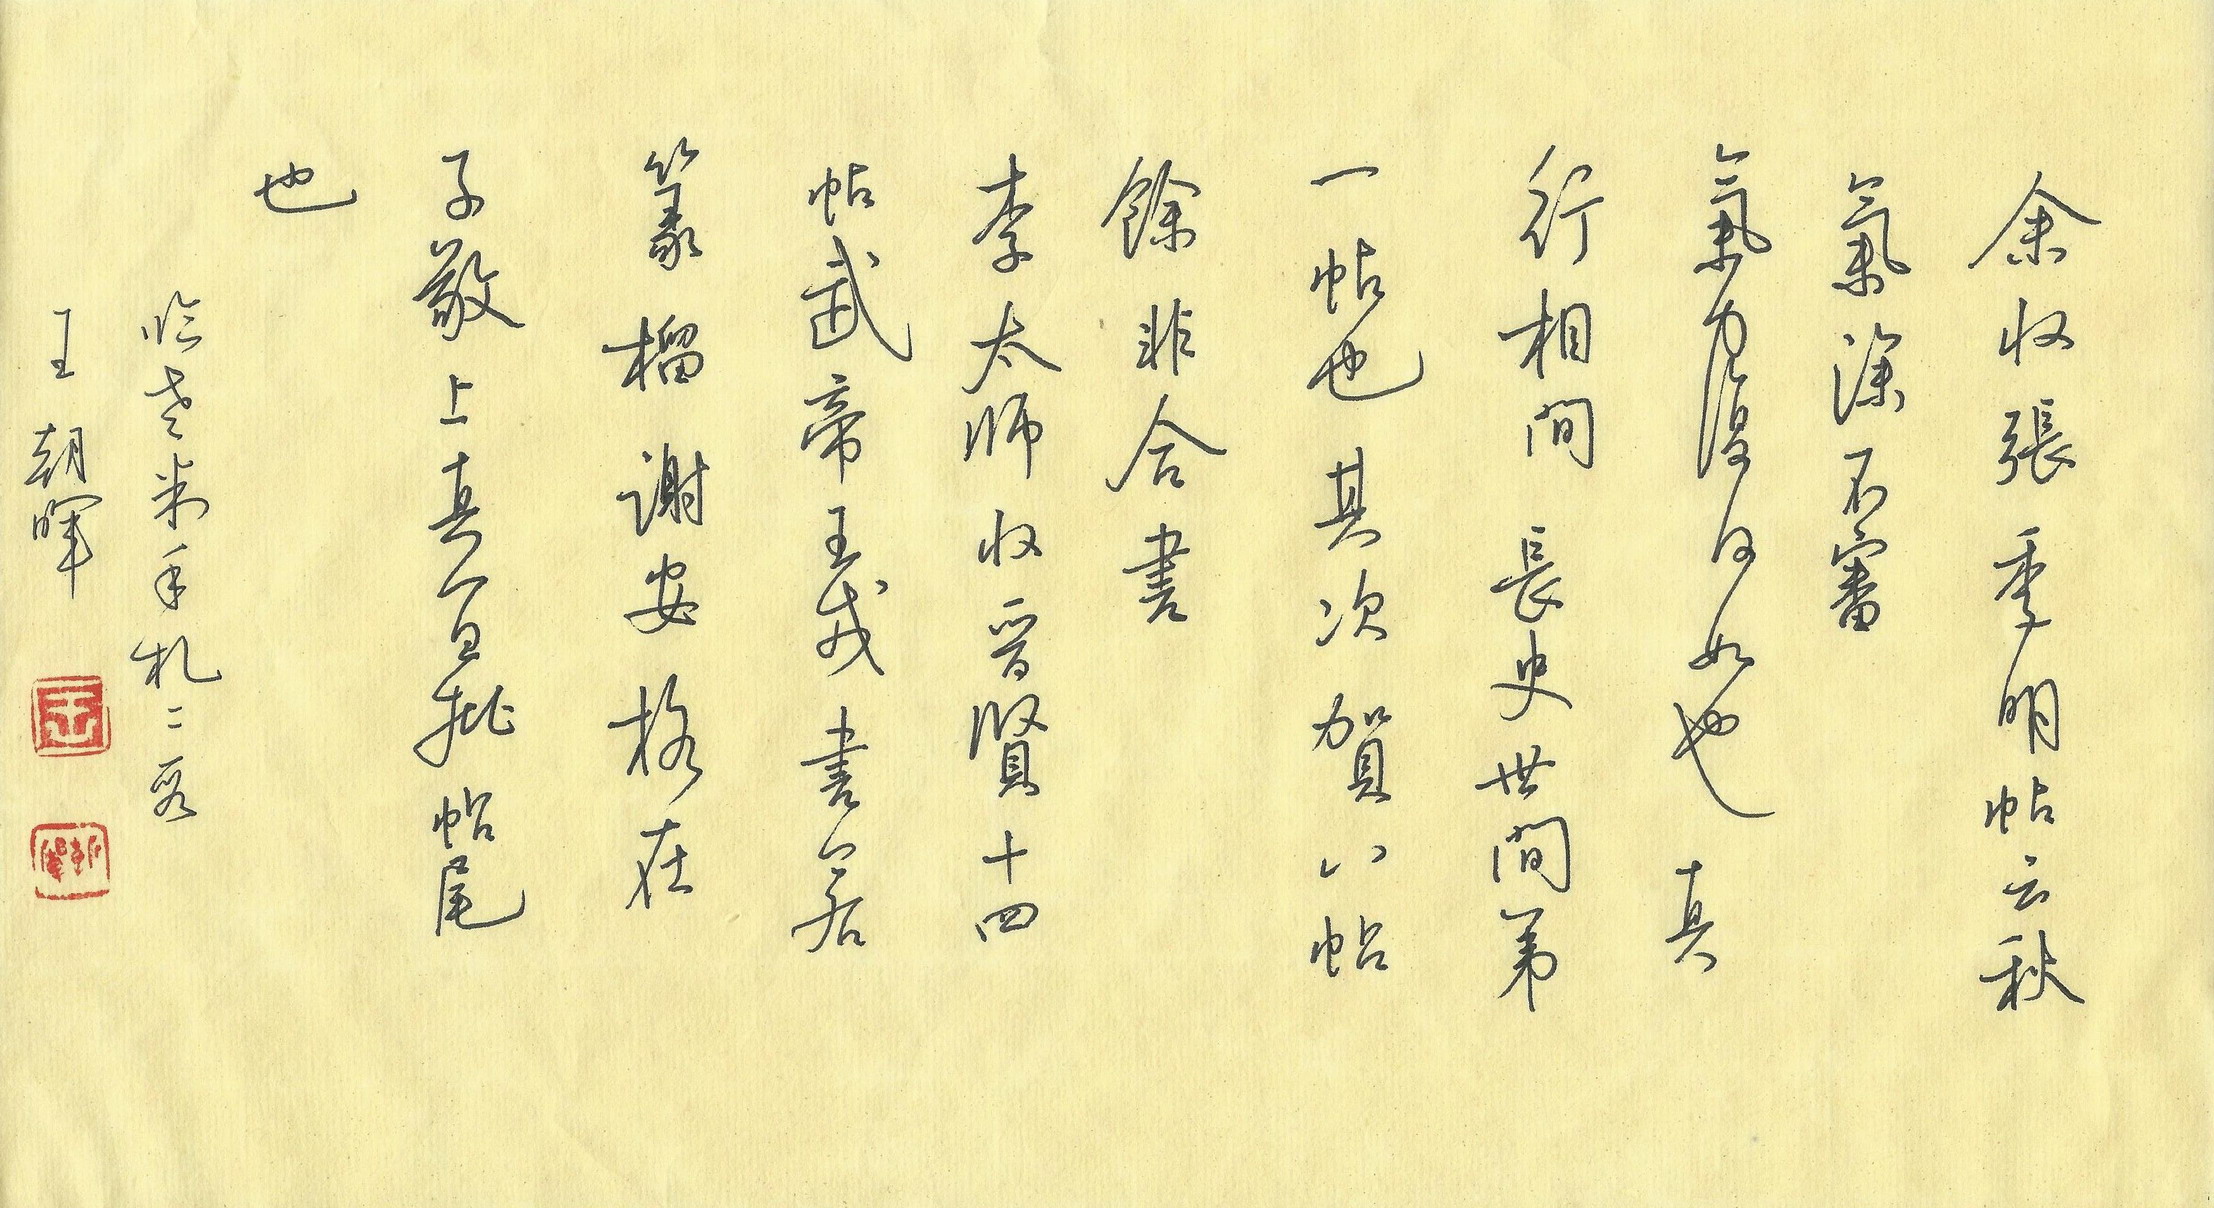 余收張季明帖云秋
氣深不審
氣力復何如也真
行相間長史世間第
一帖也其次賀八帖
餘非合書
李太師收晉賢十四
帖武帝王戎書若
篆籀謝安格在
子敬上真宜批帖尾
也
臨老米手札二段
王朝暉